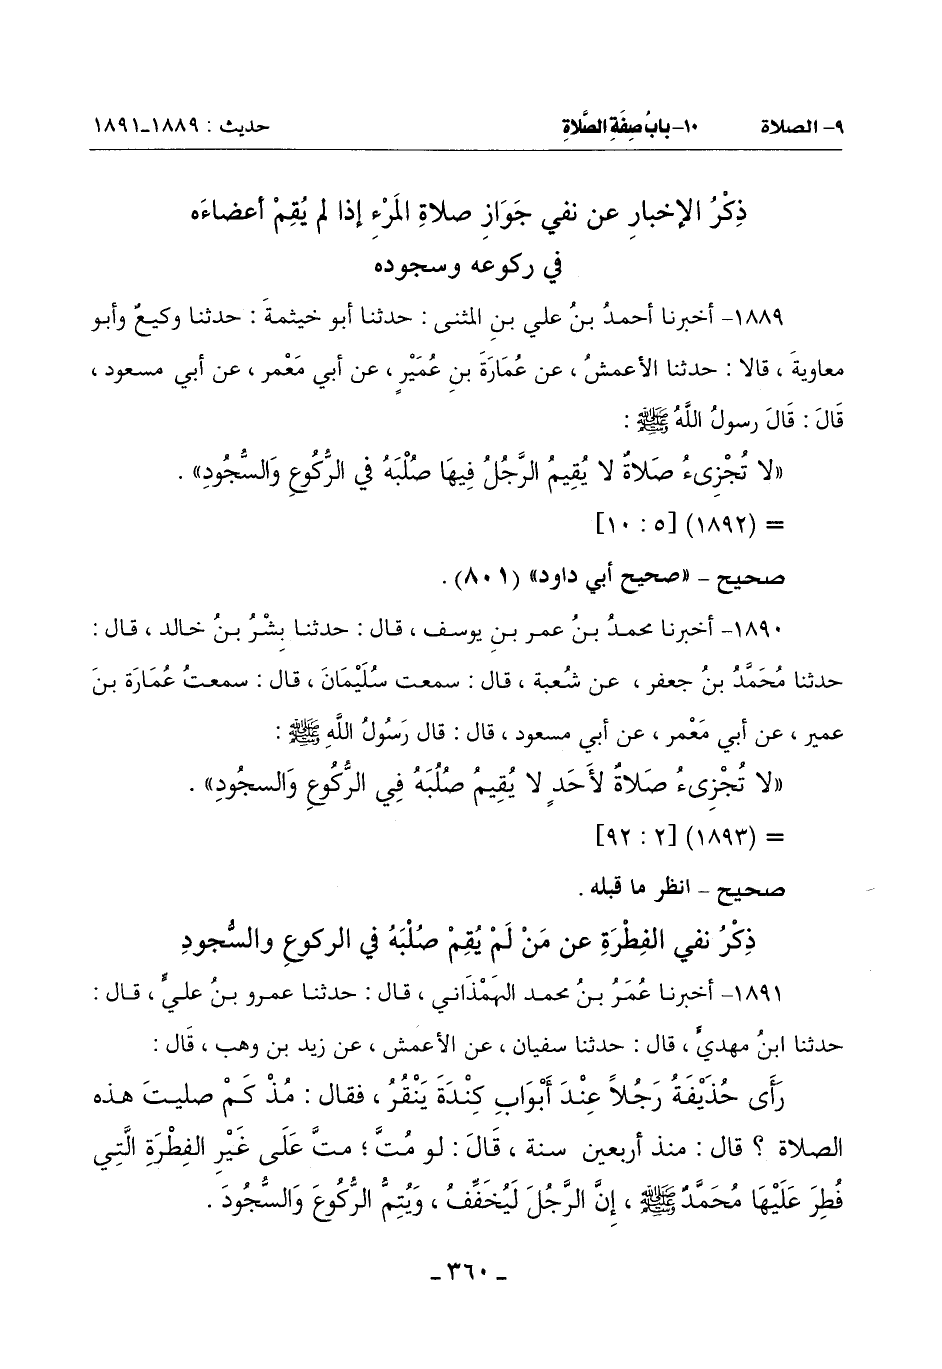 ٩- الصلاة ١٠- بابُ صِفَةِ الصَّلاةِ حديث : ١٨٨٩-١٨٩١
ذِكْرُ الإخبارِ عن نفي جَوَازِ صلاةِ المَرْءِ إذا لم يُقِمْ أعضاءَه
في ركوعه وسجوده
١٨٨٩- أخبرنا أحمدُ بنُ علي بنِ المثنى : حدثنا أبو خيثمةَ : حدثنا وكيعٌ وأبو
معاويةَ ، قالا : حدثنا الأعمشُ ، عن عُمَارَةَ بنِ عُمَيْرٍ ، عن أبي مَعْمر ، عن أبي مسعود ،
قَالَ : قَالَ رسولُ اللَّهُ ﷺ :
«لا تُجْزِىءُ صَلاةٌ لا يُقِيمُ الرَّجُلُ فِيهَا صُلْبَهُ في الرُّكُوعِ وَالسُّجُودِ» .
= (١٨٩٢) [٥ : ١٠]
صحيح - «صحيح أبي داود» (٨٠١) .
١٨٩٠- أخبرنا محمدُ بنُ عمر بنِ يوسف ، قال : حدثنا بِشْرُ بنُ خالد ، قال :
حدثنا مُحَمَّدُ بنُ جعفر ، عن شُعبة ، قال : سمعت سُلَيْمَانَ ، قال : سمعتُ عُمَارَة بنَ
عمير ، عن أبي مَعْمر ، عن أبي مسعود ، قال : قال رَسُولُ اللَّهِ ﷺ :
«لا تُجْزِىءُ صَلاةٌ لأَحَدٍ لا يُقِيمُ صُلْبَهُ فِي الرُّكُوعِ وَالسجُودِ» .
= (١٨٩٣) [٢ : ٩٢]
صحيح - انظر ما قبله .
ذِكْرُ نفي الفِطْرَةِ عن مَنْ لَمْ يُقِمْ صُلْبَهُ في الركوعِ والسُّجودِ
١٨٩١- أخبرنا عُمَرُ بنُ محمد الهَمْدَاني ، قال : حدثنا عمرو بنُ عليٍّ ، قال :
حدثنا ابنُ مهديٍّ ، قال : حدثنا سفيان ، عن الأعمش ، عن زيد بن وهب ، قَال :
رَأَى حُذَيْفَةُ رَجُلاً عِنْدَ أَبْوَابِ كِنْدَةَ يَنْقُرُ ، فقال : مُذْ كَمْ صليتَ هذه
الصلاة ؟ قال : منذ أربعين سنة ، قَالَ : لو مُتَّ ؛ متَّ عَلَى غَيْرِ الفِطْرَةِ الَّتِي
فُطِرَ عَلَيْهَا مُحَمَّدٌ ﷺ ، إنَّ الرَّجُلَ لَيُخَفِّفُ ، وَيُتِمُّ الرُّكُوعَ وَالسُّجُودَ .
- ٣٦٠ -